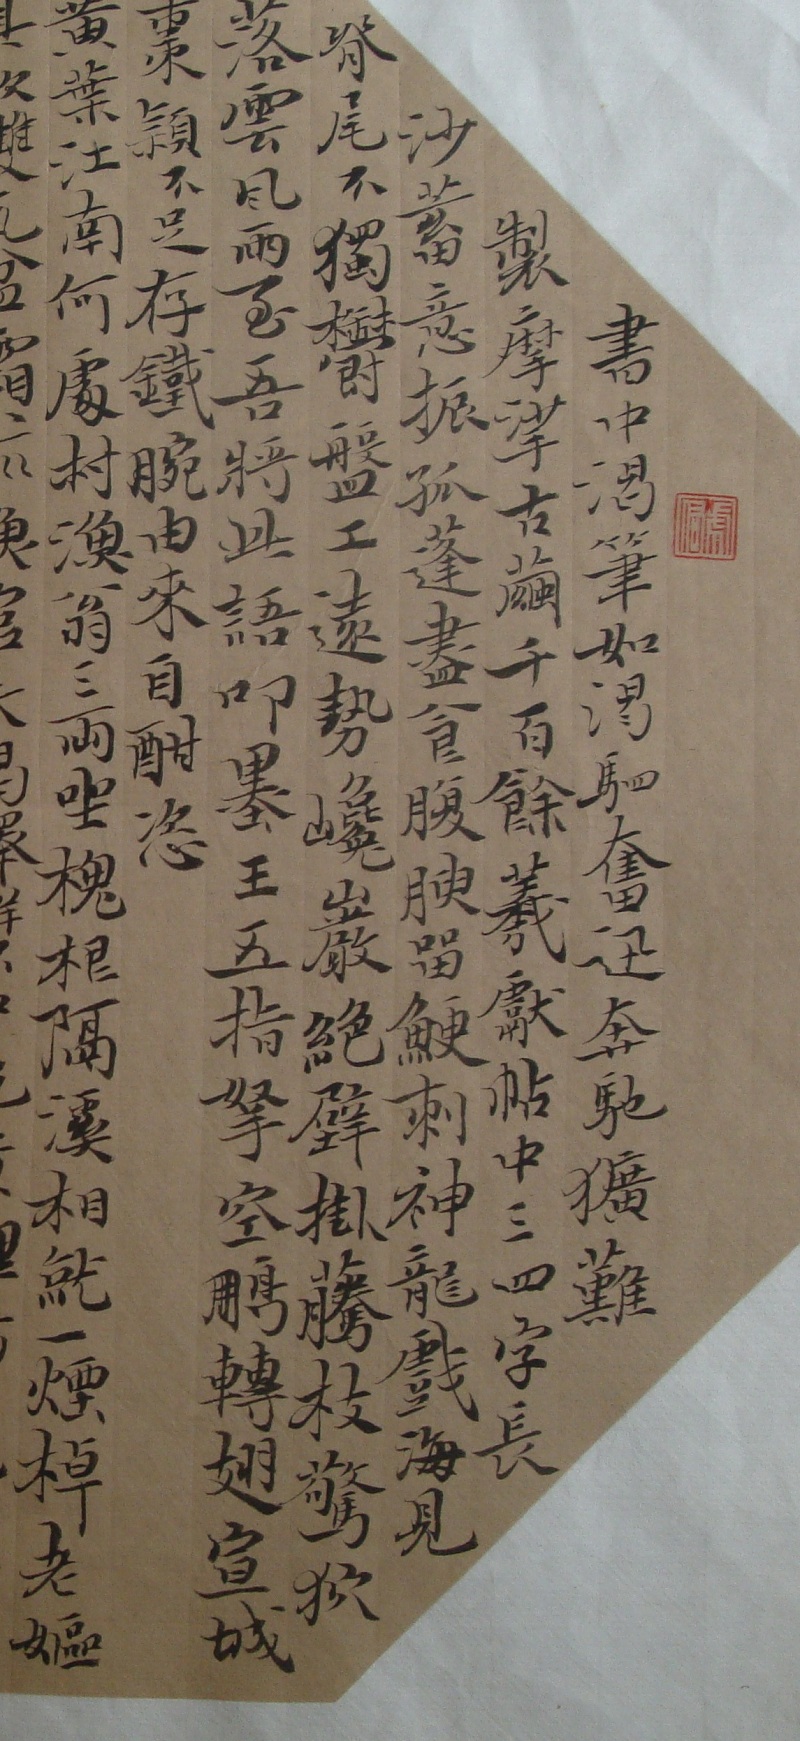 書中渴筆如渴驷奮迅奔馳獷難
製摩挲古繭千百餘羲獻帖中三四字長
沙蓄意振孤蓬盡食腹腴留鯁刺神龍戲海見
脊尾不獨鬱盤工遠勢巉巖絕壁掛藤枝驚狖
落雲風雨至吾將此語叩墨王五指拏空鵬轉翅宣城
棗穎不足存鐵腕由來自酣恣
黃葉江南何處村漁翁三兩坐槐根隔溪相就一煙棹老嫗